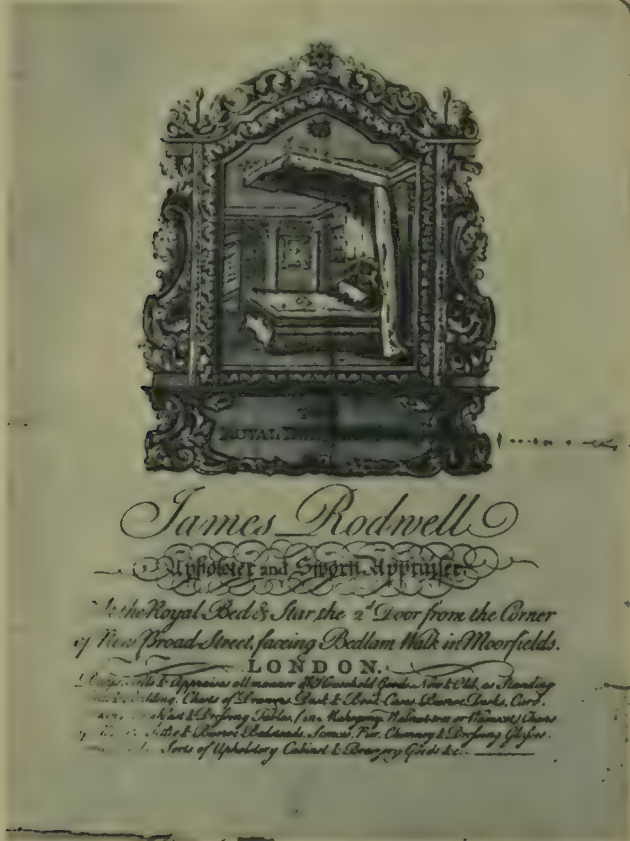 ROYAL
James Rodwell
Upholster and Sworn Appraiser
the Royal Bed & Star, the 2d Door from the Corner
of New Broad-Street, faceing Bedlam Walk in Moorfields.
LONDON.
& Appraises all manner of Household Goods, New & Old, as Standing
Chests of Drawers, Desk & Book Cases, Buroe Desks, Card,
& Dressing Tables, in Mahogany, Wallnuttree or Chairs
& Buroe Bedsteads, Sconces, Pier, Chimney & Dressing Glasses.
Sorts of Upholstory Cabinet & Brazery Goods &c.